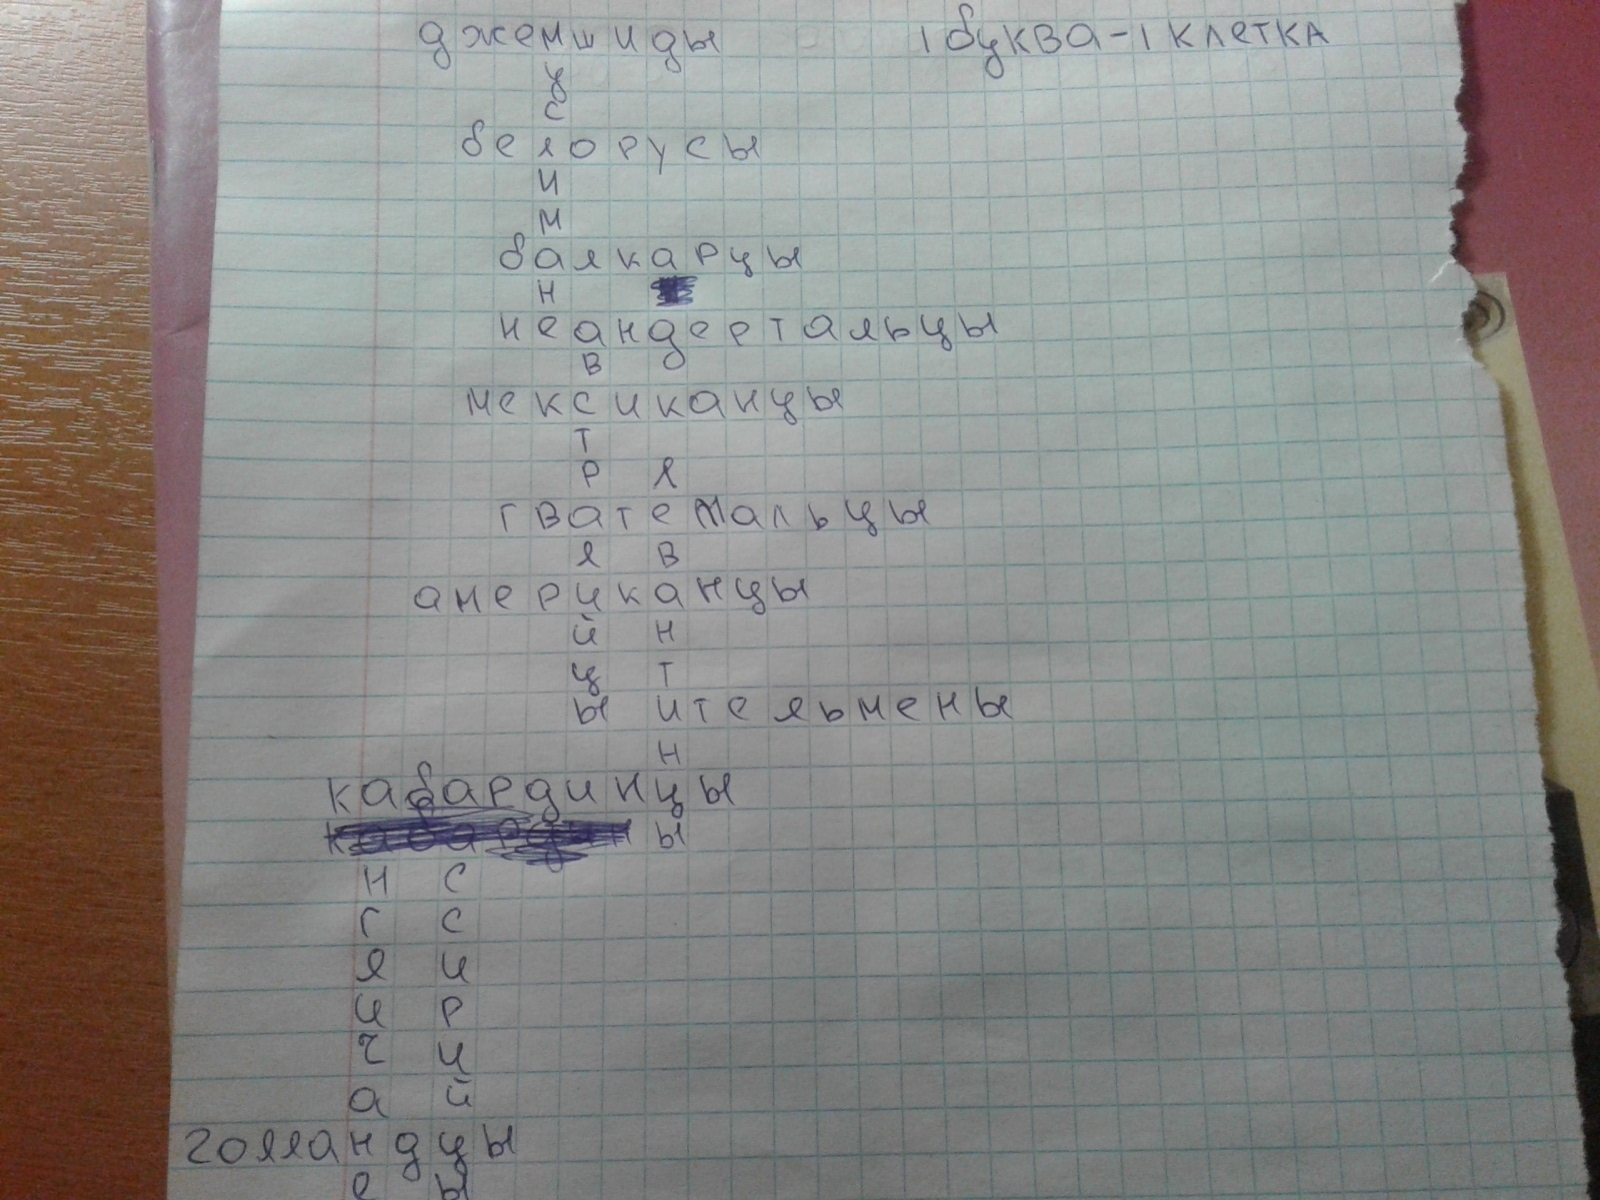 джемшиды 1 буква-1 клетка
у
с
белорусы
и
м
балкарцы
н
неандертальцы
в д
мексиканцы
т
р л
гватемальцы
л в
американцы
й н
ц т
ы ительмены
н
кабардинцы
ы
н с
г с
л и
и р
ч и
а й
голландцы
е ы